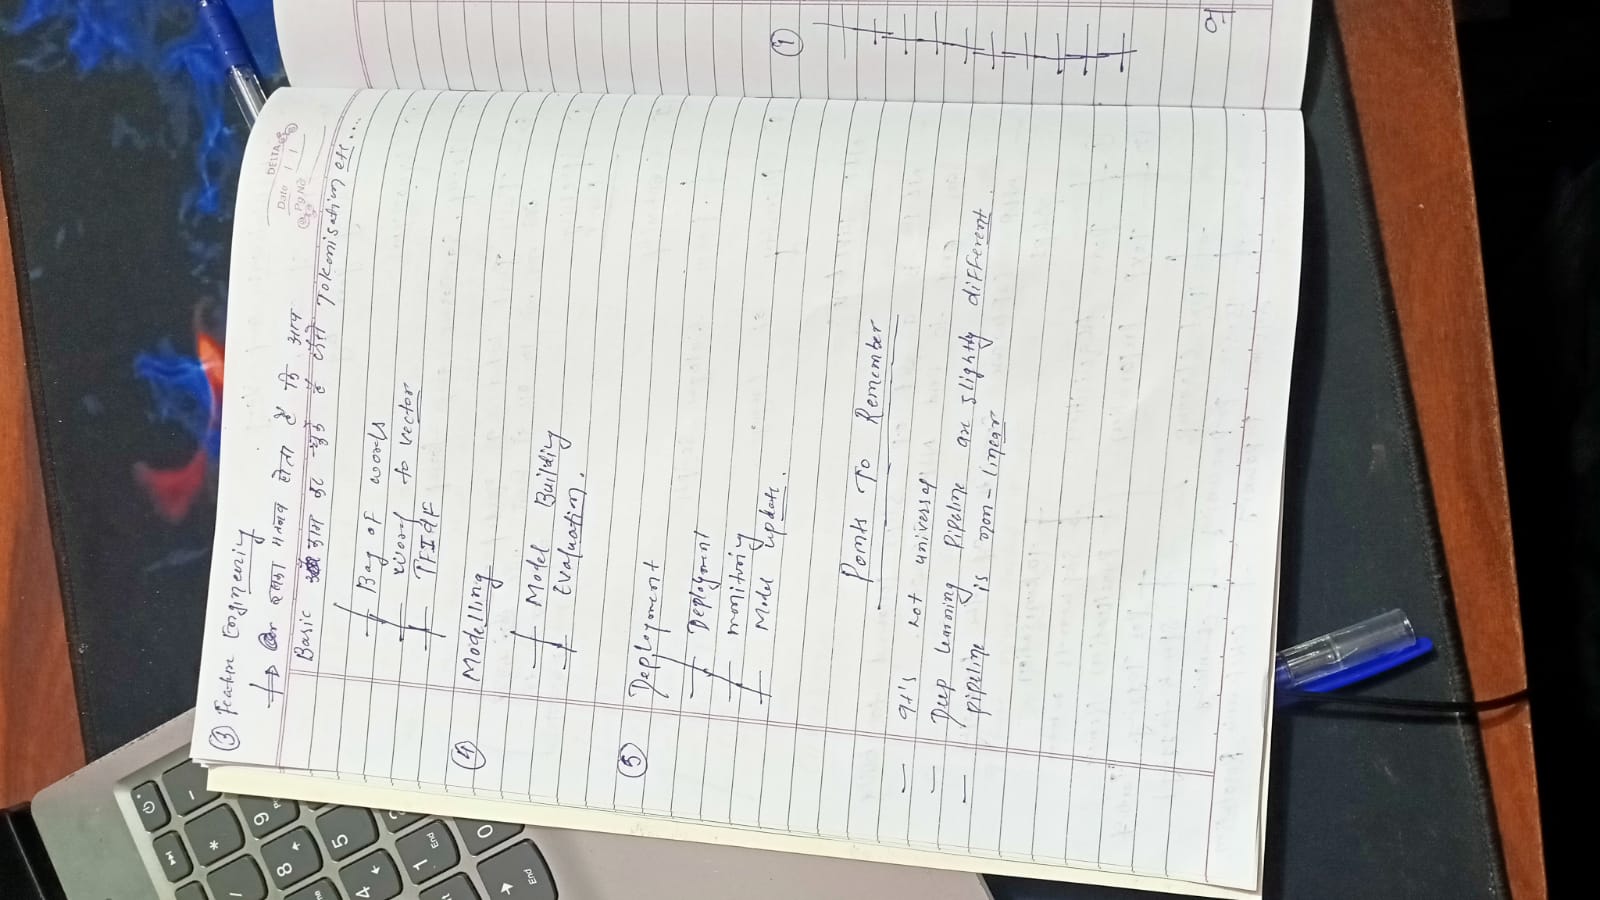 DELTA
Date
Pg No
③ Feature Engineeriy
इसका मतलब होता है कि आप
Basic काम कर चुके हैं जैसे Tokenisation etc....
Bag of words
word to vector
TFIdF
④ Modelling
Model Buildiy
Evaluation.
⑤ Deployment
Deployment
monitoriy
Model update.
Points To Remember
— It's not universal
— Deep learning Pipeline are slightly different
— pipeline is non-linear